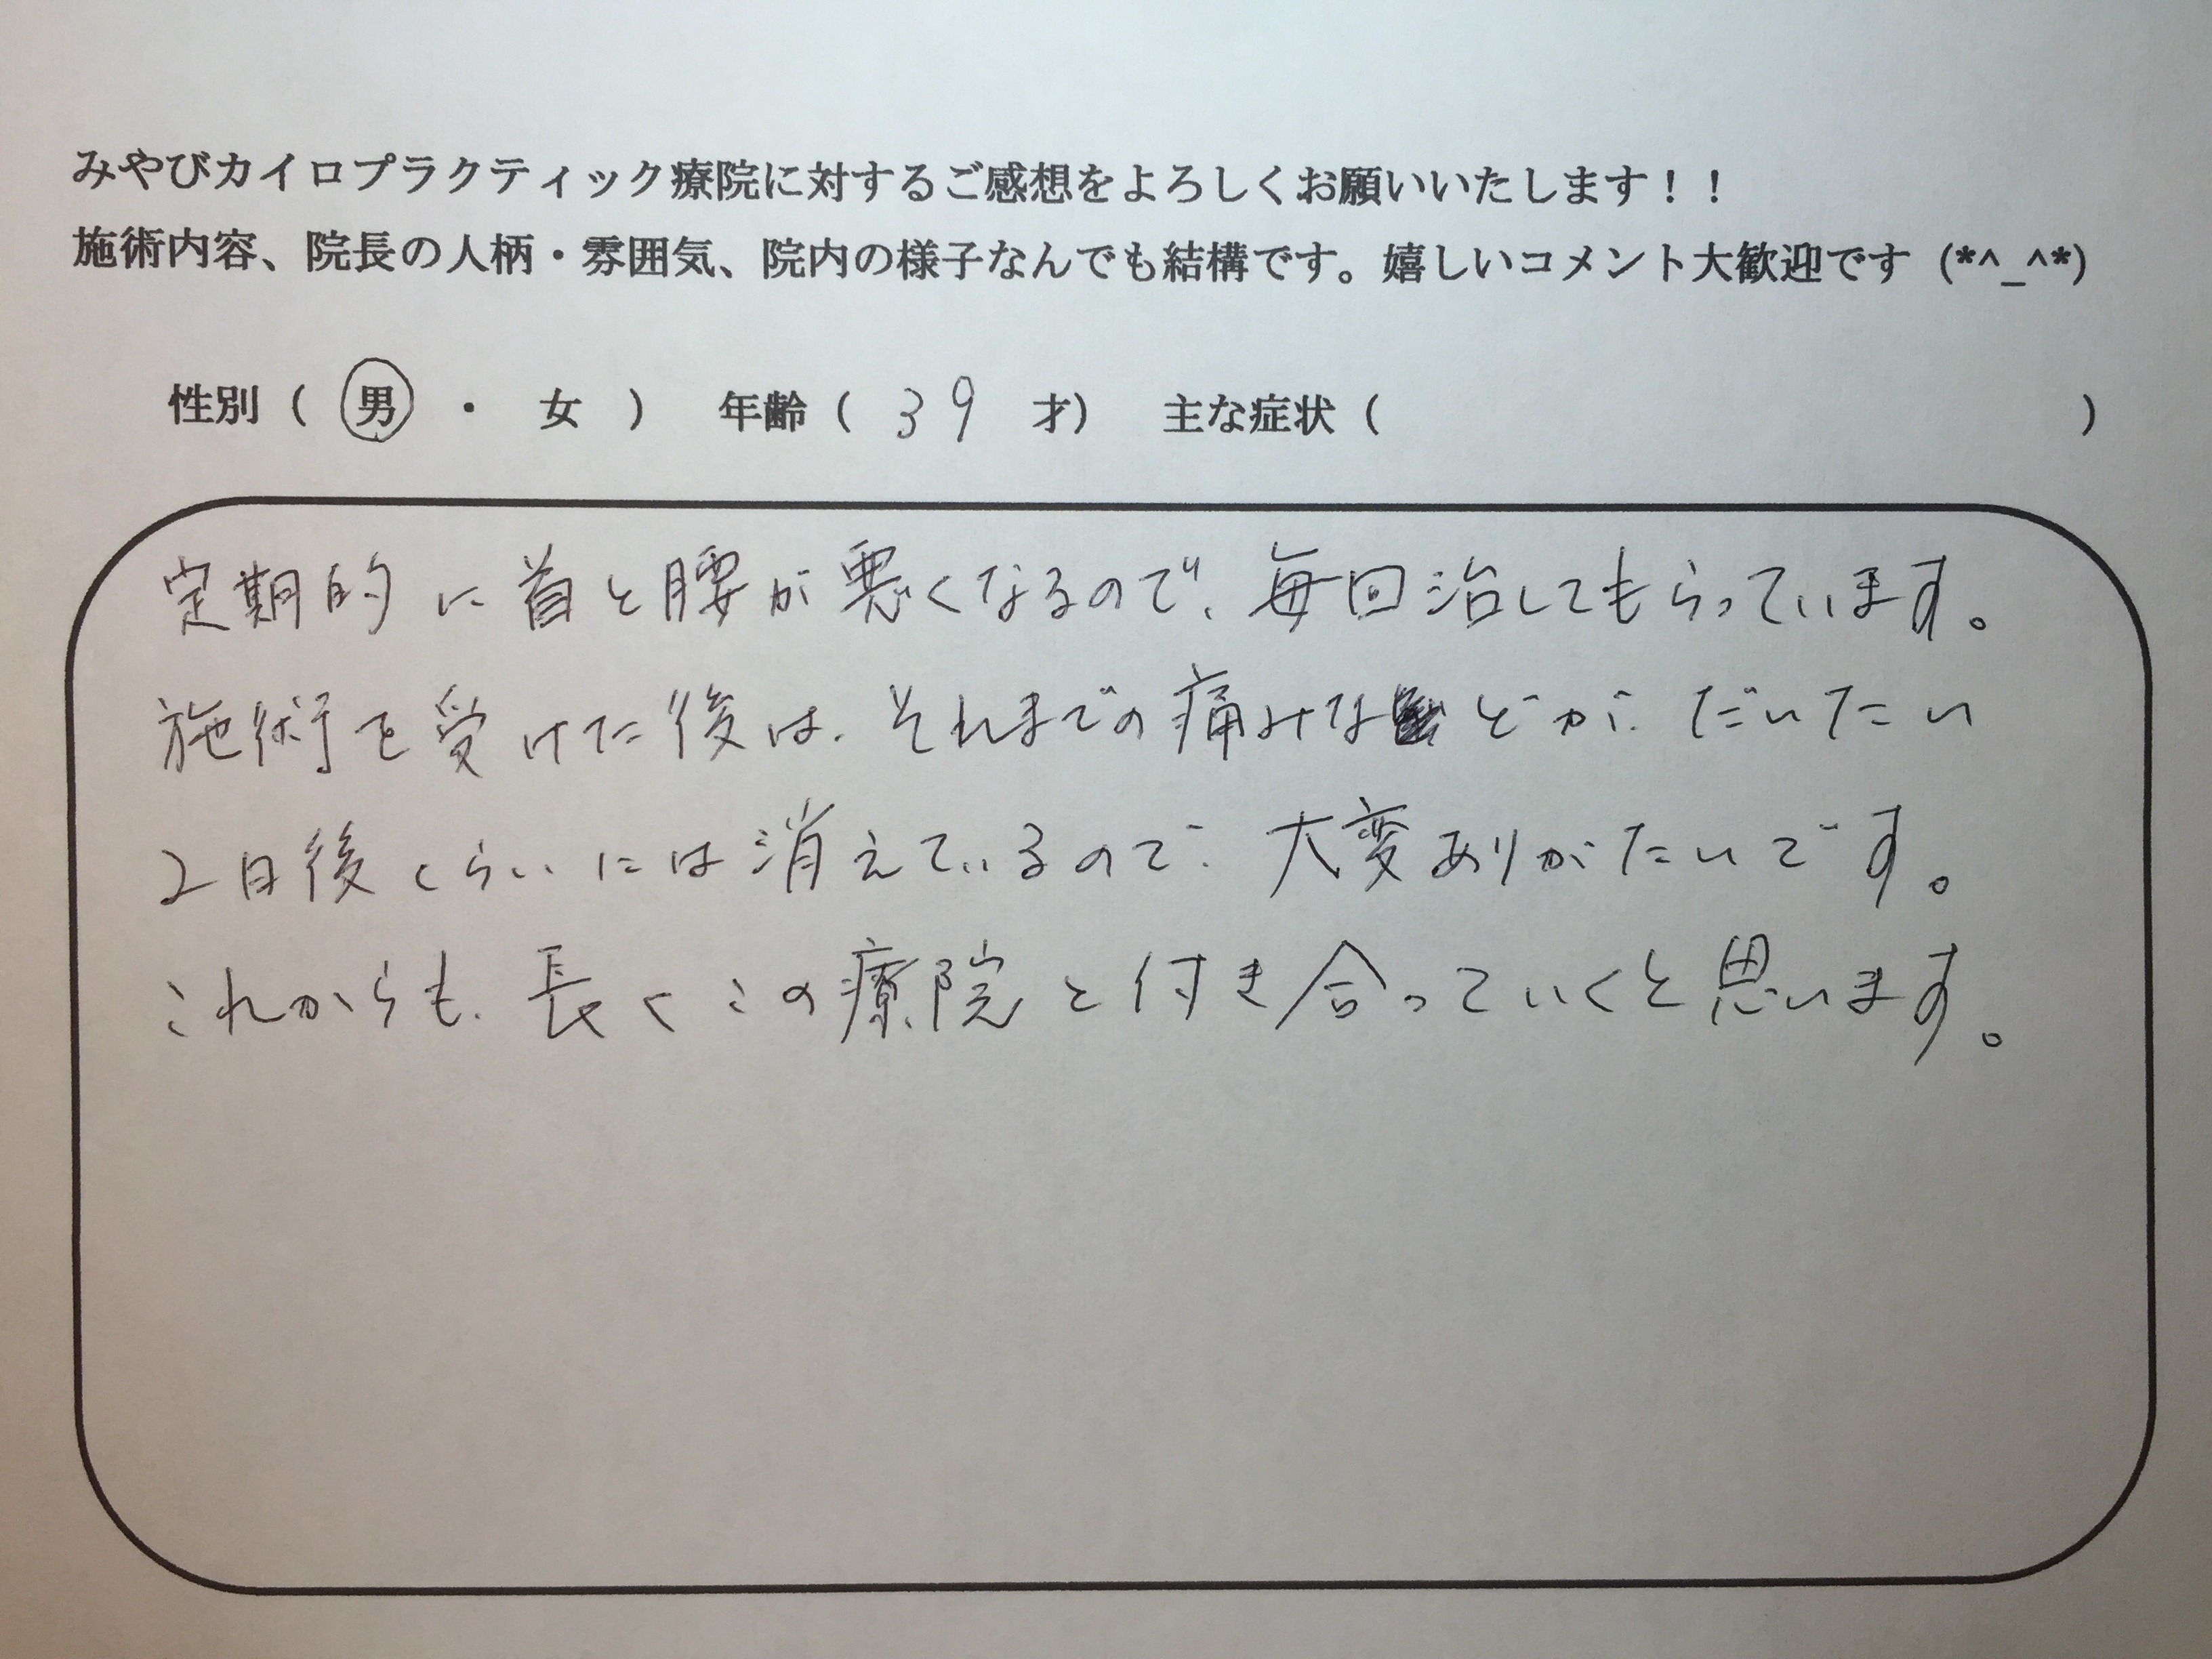 みやびカイロプラクティック療院に対するご感想をよろしくお願いいたします！！
施術内容、院長の人柄・雰囲気、院内の様子なんでも結構です。嬉しいコメント大歓迎です (*^_^*)
性別（ 男 ・ 女 ） 年齢（ 39 才） 主な症状（ ）
定期的に首と腰が悪くなるので、毎回治してもらっています。
施術を受けた後は、それまでの痛みなどが、だいたい
2日後くらいには消えているので、大変ありがたいです。
これからも、長くこの療院と付き合っていくと思います。